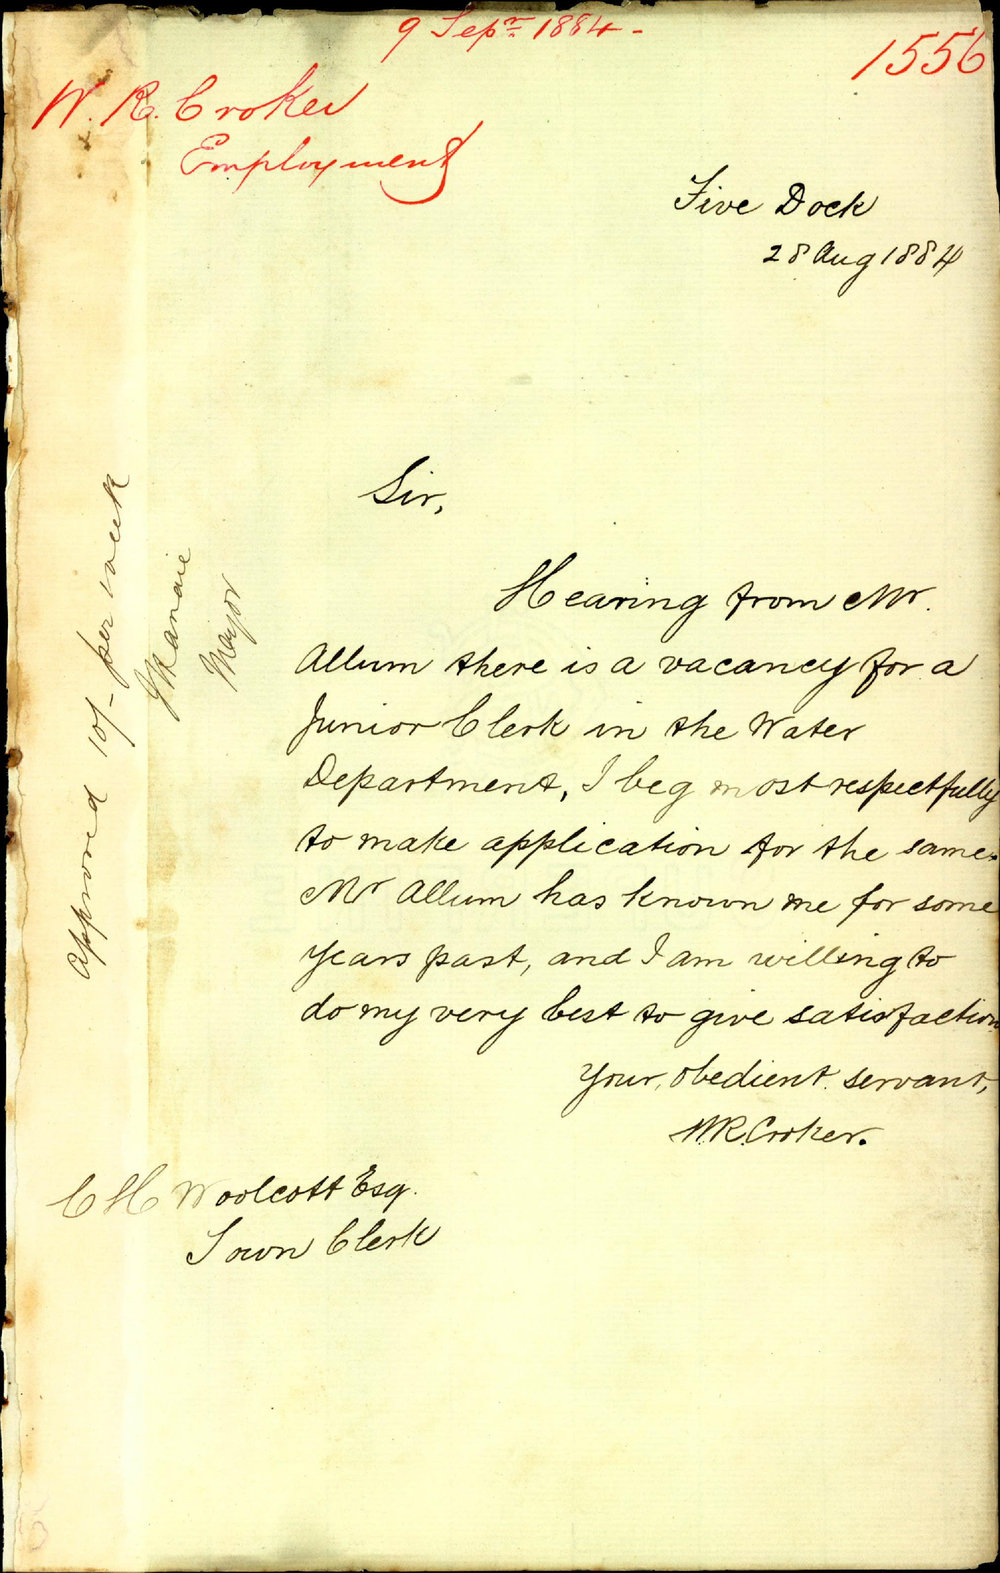 9 Sepr. 1884 -
1556
W. R. Croker
Employment
Five Dock
28 Aug 1884
Sir,
Hearing from Mr.
Allum there is a vacancy for a
Junior Clerk in the Water
Department, I beg most respectfully
to make application for the same.
Mr Allum has known me for some
years past, and I am willing to
do my very best to give satisfaction
Your obedient servant,
W.R. Croker.
C H Woolcott Esq.
Town Clerk
Approved 10/- per week
Mayor